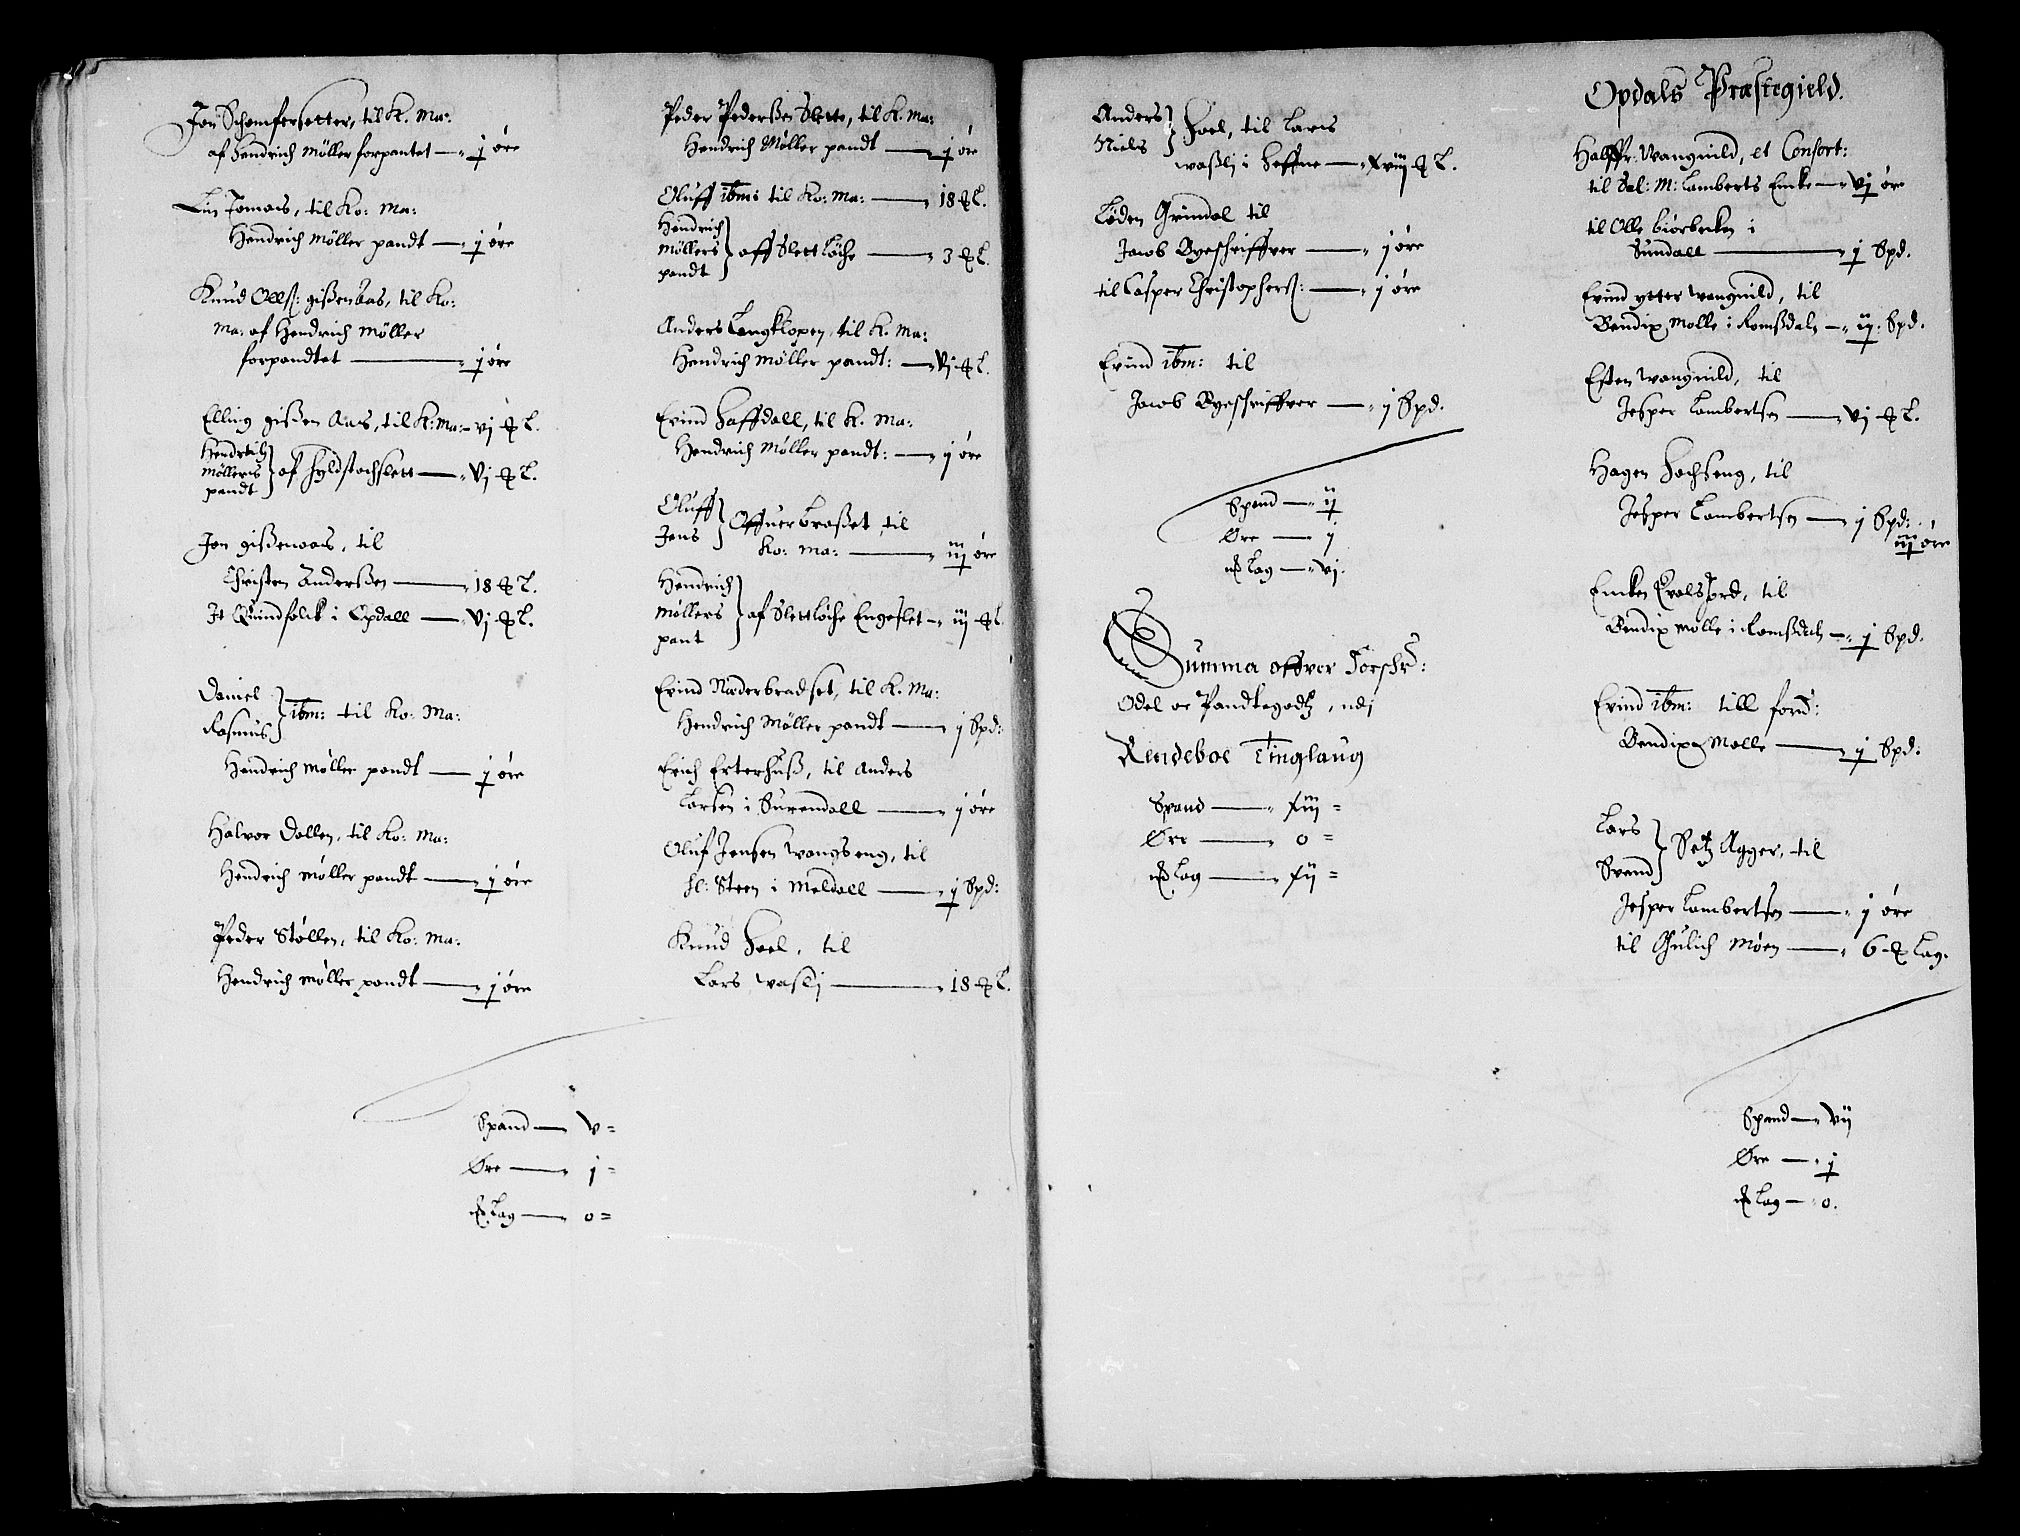 Jon Schomfersetter, til K. Ma:
af Hendrich Möller forpantet — j öre
Lui Jomais, til Ko: Ma:
Hendrich Möller pandt — j öre
Knud Ollß: gißenaas, til Ko:
Ma: af Hendrich Möller
forpandtet — j öre
Elling gißen Aas, til K: Ma: — vj ꝶ L.
Hendrich
Möllers
pandt } af fyldstochslett — vj ꝶ L.
Jon gißenaas, til
Christen Anderßen — 18 ꝶ L.
It Quindfolck i Opdall — vj ꝶ L.
Daniel
Rasmus } ibm: til Ko: Ma:
Hendrich Möller pandt — j öre
Halvor Dallen, til Ko: Ma:
Hendrich Möller pandt — j öre
Peder Stöllen, til Ko: Ma:
Hendrich Möller pandt — j öre
Spand — v =
Öre — j =
ꝶ Lag — 0 =
Peder Pederßen Slette, til K. Ma:
Hendrich Möller pandt — j öre
Oluff ibm: til Ko: Ma: — 18 ꝶ L.
Hendrich
Möllers
pandt } aff Slettlöche — 3 ꝶ L.
Anders Langklopen, til K. Ma:
Hendrich Möller pandt: — vj ꝶ L.
Evind Haffdall, til K. Ma:
Hendrich Möller pandt: — j öre
Oluff
Jens } Offuerbraßet, til
Ko: Ma: — iij öre
Hendrich
Möllers
pant } af Slettlöche Engeslet — iij ꝶ L.
Evind Nederbradset, til K. Ma:
Hendrich Möller pandt — j Spd:
Erich Erterhuß, til Anders
Larsen i Surendall — j öre
Oluf Jensen Wangseng, til
Hl: Steen i Meldall — j Spd:
Knud Hoel, til
Lars Waßlj — 18 ꝶ L.
Anders
Niels } Hoel, til Lars
Waßlj i Heffne — xviij ꝶ L.
Löden Grindal til
Jacob Byeschriffver — j öre
til Casper Christophersß: — j öre
Evind ibm: til
Jacob Byeschriffver — j Spd.
Spand — ij
Öre — j
ꝶ Lag — vj.
Summa offver Forschr:
Odel oc Pandtegodtz, udj
Rendeboe Tinglaug
Spand — xiij =
Öre — 0 =
ꝶ Lag — xij =
Opdals Præstegield.
Halffr: Wangnild, et Consort:
til Sal: M: Lamberts Encke — vj öre
til Olle biörbecken i
Sundall — j Spd.
Evind ytter Wangnild, til
Bendix Molle i Romßdaln — ij: Spd.
Esten Wangnild, til
Jesper Lambertsen — vj ꝶ L.
Hagen Hochseng, til
Jesper Lambertsen — j Spd:
iij öre
Encken Evalsjord, til
Bendix Molle i Romßdaln — j Spd.
Evind ibm: till forn:
Bendix Molle — j Spd:
Lars
Svend } Setz Agger, til
Jesper Lambertsen — j öre
til Gulich Möen — 6 ꝶ Lag.
Spand — vij
Öre — j
ꝶ Lag — 0.